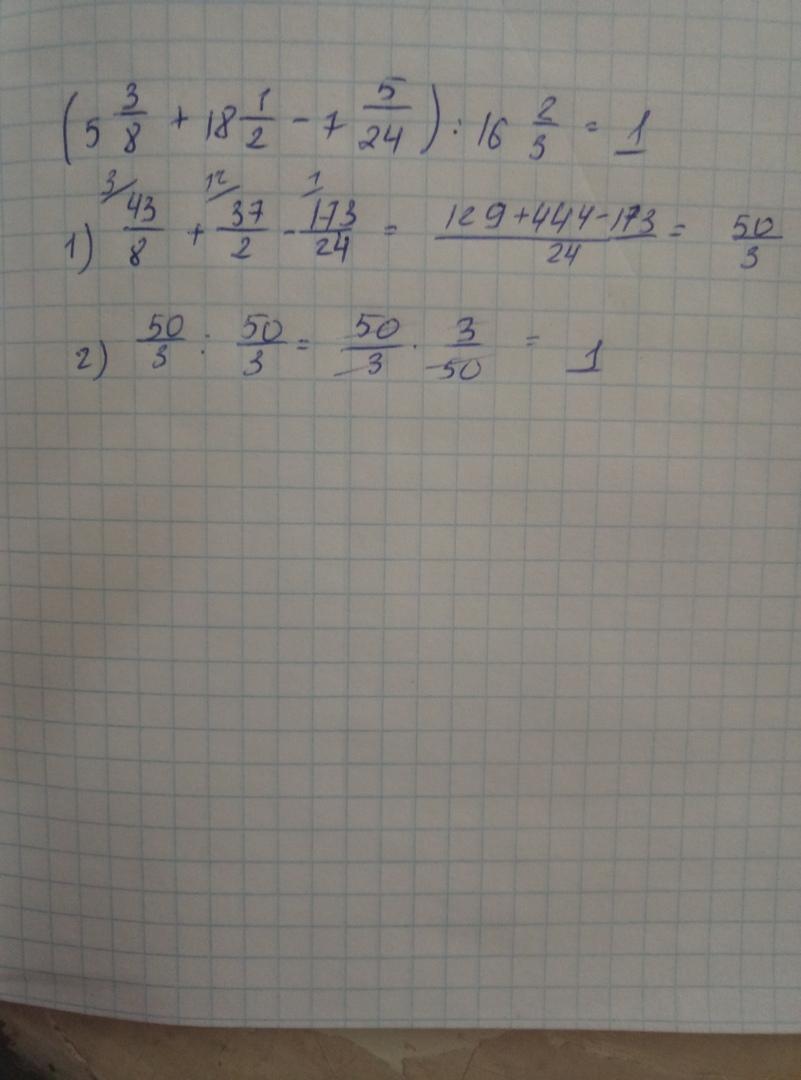 (5 3/8 + 18 1/2 - 7 5/24) : 16 2/3 = 1
1) 3/ 43/8 + 12/ 37/2 - 1/ 173/24 = 129+444-173/24 = 50/3
2) 50/3 : 50/3 = 50/3 · 3/50 = 1